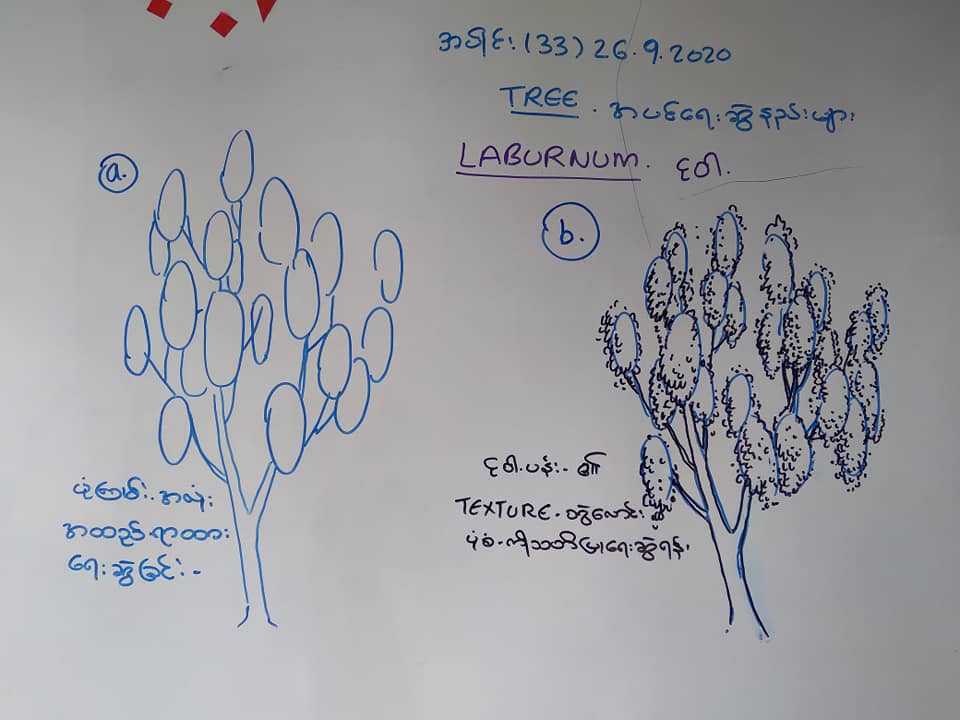 အပိုင်း (33) 26.9.2020
TREE. အပင်ရေးဆွဲနည်းများ
LABURNUM. ငုဝါ.
a.
b.
ပုံကြမ်း. အလုံး
အထည်.ရာထား
ရေးဆွဲခြင်း -
ငုဝါ.ပန်း. ၏
TEXTURE. တွဲလောင်း
ပုံစံ.ကိုသတိပြုရေးဆွဲရန်.